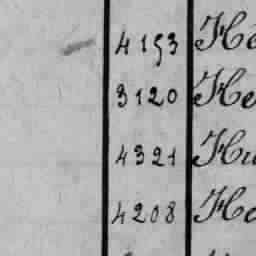 4153 He
3120 He
4321 Hu
4208 Ho